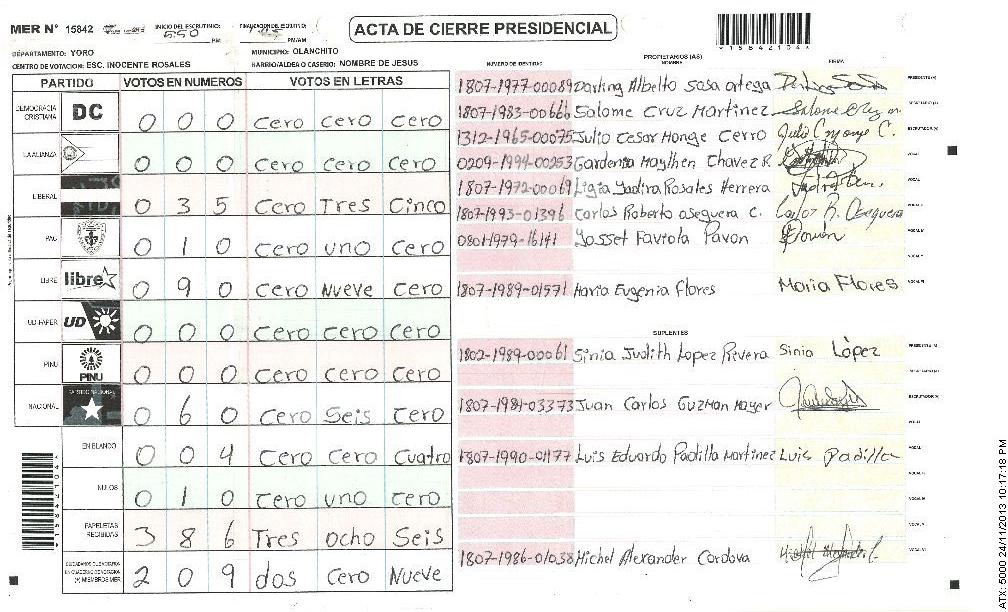 MER N° 15842 INICIO DEL ESCRUTINIO: 5:50 PM FINALIZACION DEL ESCRUTINIO: PM/AM
ACTA DE CIERRE PRESIDENCIAL
DEPARTAMENTO: YORO MUNICIPIO: OLANCHITO
CENTRO DE VOTACION: ESC. INOCENTE ROSALES BARRIO/ALDEA O CASERIO: NOMBRE DE JESUS
PARTIDO VOTOS EN NUMEROS VOTOS EN LETRAS
DEMOCRACIA CRISTIANA DC 0 0 0 cero cero cero
LA ALIANZA 0 0 0 cero cero cero
LIBERAL 0 3 5 cero Tres cinco
PAC 0 1 0 cero uno cero
LIBRE libre 0 9 0 cero Nueve cero
UD-FAPER UD 0 0 0 cero cero cero
PINU PINU 0 0 0 cero cero cero
NACIONAL PARTIDO NACIONAL 0 6 0 cero Seis cero
EN BLANCO 0 0 4 cero cero cuatro
NULOS 0 1 0 cero uno cero
PAPELETAS RECIBIDAS 3 8 6 Tres ocho Seis
(+) MIEMBROS MER 2 0 9 dos cero Nueve
PROPIETARIOS (AS)
NUMERO DE IDENTIDAD NOMBRE FIRMA
1807-1977-00089 Darling Albelto sosa ortega PRESIDENTE (A)
1807-1983-00666 Salome Cruz Martinez Salome Cruz m. SECRETARIO (A)
1312-1965-00075 Julio Cesar Monge Cerro Julio C. Monge C. ESCRUTADOR (A)
0209-1994-00253 Gardenia Maylhen Chavez R. VOCAL
1807-1972-00069 Ligia Yadira Rosales Herrera VOCAL
1807-1993-01396 Carlos Roberto oseguera c. Carlos R. Oseguera
0801-1979-16141 Yosset Faviola Pavon
1807-1989-01571 Maria Eugenia flores Maria Flores
SUPLENTES
1802-1989-00061 Sinia Judith Lopez Rivera Sinia López PRESIDENTE (A)
1807-1981-03373 Juan Carlos Guzman Mayer ESCRUTADOR (A)
1807-1990-01177 Luis Eduardo Padilla Martinez Luis Padilla
1807-1986-01038 Michel Alexander Cordova
ATX: 5000 24/11/2013 10:17:18 PM